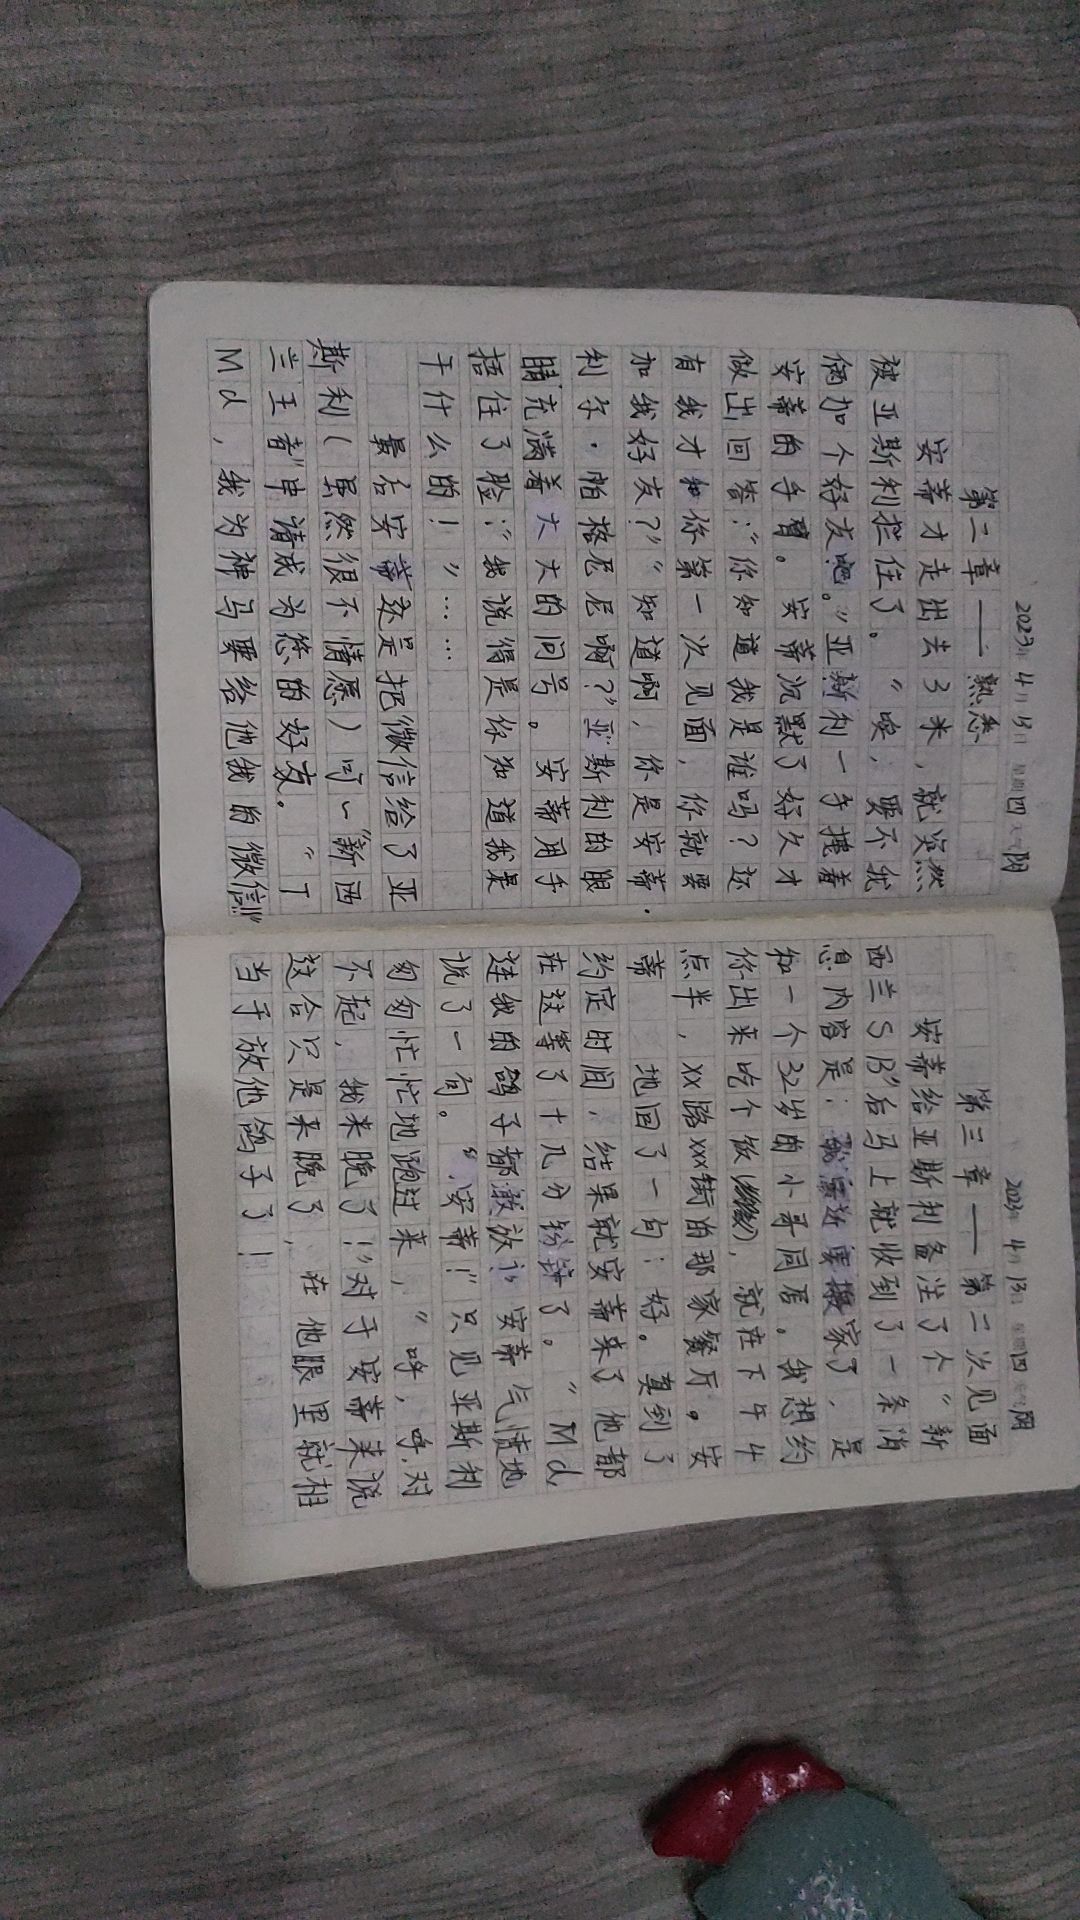 2023年 4月 13日 星期四 天气阴
第二章——熟悉
安蒂才走出去3米，就突然
被亚斯利拦住了。“唉，要不我
俩加个好友吧。”亚斯利一手拽着
安蒂的手臂。安蒂沉默了好久才
做出回答：“你知道我是谁吗？还
有我才和你第一次见面，你就要
加我好友？”“知道啊，你是安蒂·
利尔·帕格尼尼啊？”亚斯利的眼
睛充满着大大的问号。安蒂用手
捂住了脸：“我说得是你知道我是
干什么的！”……
最后安蒂还是把微信给了亚
斯利（虽然很不情愿）叮～“新西
兰王者”申请成为您的好友。“T
Md，我为神马要给他我的微信!!”
2023年 4月 13日 星期四 天气阴
第三章——第二次见面
安蒂给亚斯利备注了个“新
西兰SB”后马上就收到了一条消
息内容是：我最近要搬家了，是
和一个32岁的小哥同居。我想约
你出来吃个饭，就在下午4
点半，xx路xxx街的那家餐厅。安
蒂 地回了一句：好。真到了
约定时间，结果就安蒂来了他都
在这等了十几分钟了。“Md
连我的鸽子都敢放！”安蒂气愤地
说了一句。“安蒂！”只见亚斯利
匆匆忙忙地跑过来，“呼，呼，对
不起，我来晚了！”对于安蒂来说
这合只是来晚了，在他眼里就相
当于放他鸽子了！